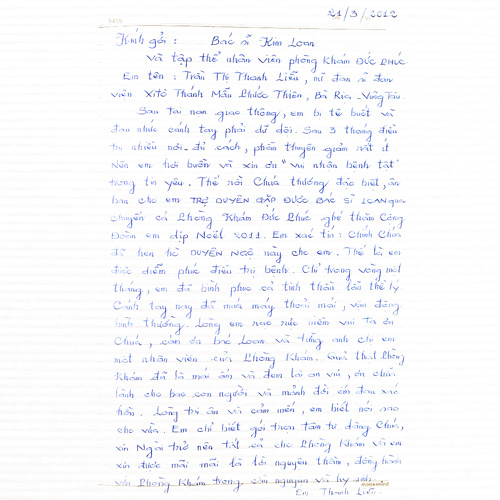 21/3/2012
Kính gởi : Bác sĩ Kim Loan
và tập thể nhân viên phòng khám ĐỨC PHÚC
Em tên : Trần Thị Thanh Liễu, nữ đan sĩ đan
viện Xitô Thánh Mẫu Phước Thiên, Bà Rịa - Vũng Tàu.
Sau tai nạn giao thông, em bị tê buốt và
đau nhức cánh tay phải dữ dội. Sau 3 tháng điều
trị nhiều nơi - đủ cách, phần thuyên giảm rất ít
Nên em hơi buồn và xin ơn "vui nhận bệnh tật"
trong tin yêu. Thế rồi Chúa thương đặc biệt, ân
ban cho em TRỢ DUYÊN GẶP ĐƯỢC BÁC SĨ LOAN qua
chuyến cả Phòng Khám Đức Phúc ghé thăm Cộng
Đoàn em dịp Noël 2011. Em xác tín : Chính Chúa
đã hẹn hò DUYÊN NGỘ này cho em. Thế là em
được diễm phúc điều trị bệnh. Chỉ trong vòng một
tháng, em đã bình phục cả tinh thần lẫn thể lý
Cánh tay nay đã mưa máy thoải mái, vận động
bình thường. Lòng em rạo rực niềm vui tạ ơn
Chúa, cám ơn bác Loan và từng anh chị em
một nhân viên của Phòng Khám. Quả thật Phòng
Khám đã là mái ấm và đem lại an vui, ơn chữa
lành cho bao con người và mảnh đời ốm đau xác
hồn. Lòng tri ân và cảm mến, em biết nói sao
cho vừa. Em chỉ biết gởi trọn tâm tư dâng Chúa,
xin Ngài trở nên tất cả cho Phòng Khám và em
xin được mãi mãi là lời nguyện thầm, đồng hành
với Phòng Khám trong cầu nguyện và hy sinh.
Em Thanh Liễu